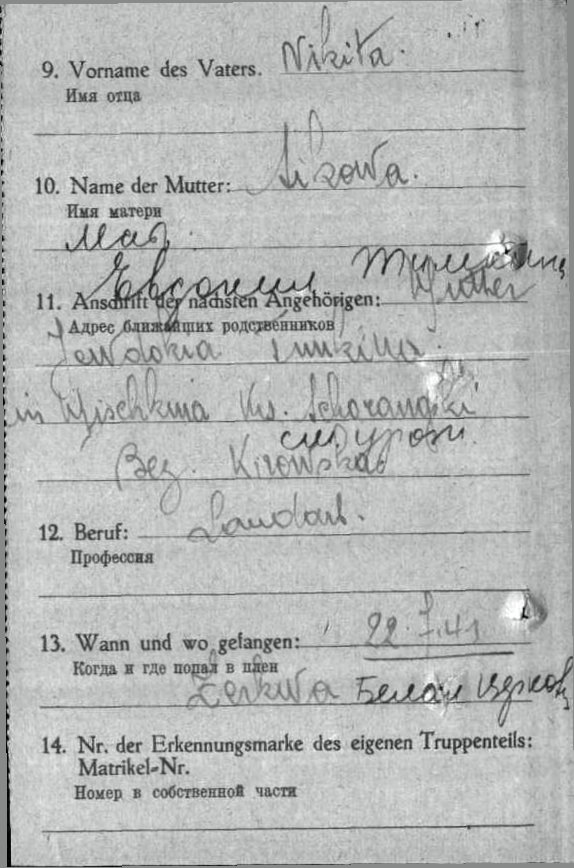 9. Vorname des Vaters. Nikita.
Имя отца
10. Name der Mutter: Sisowa.
Имя матери
11. Anschrift der nächsten Angehörigen: Mutter
Евдокии
Адрес ближайших родственников
Jewdokia
in Mischkina Krs. Schorangski
Bez. Kirowskao
12. Beruf: Landarb.
Профессия
13. Wann und wo gefangen: 22.7.41
Когда и где попал в плен
Zerkwa Белая Церковь
14. Nr. der Erkennungsmarke des eigenen Truppenteils:
Matrikel-Nr.
Номер в собственной части